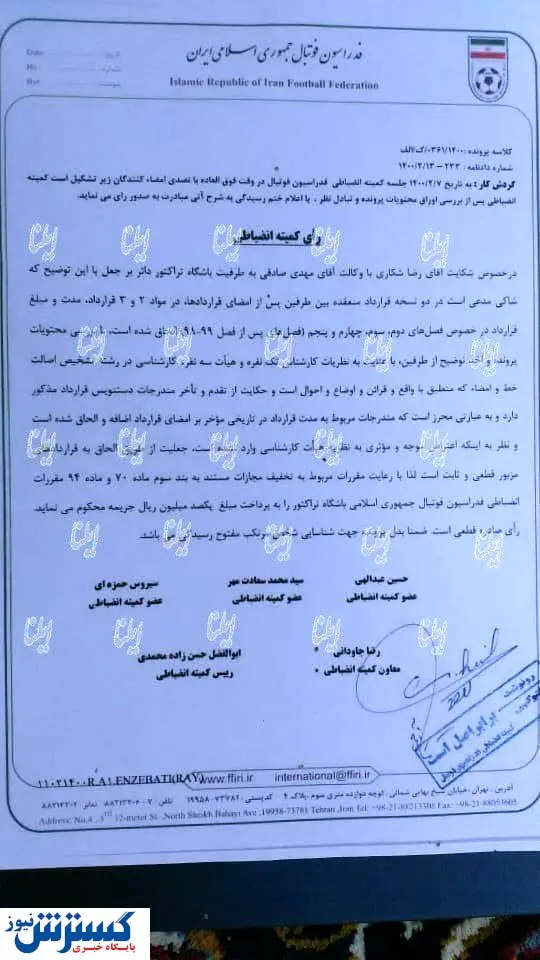 فدراسیون فوتبال جمهوری اسلامی ایران
Islamic Republic of Iran Football Federation
Date:
No:
Ref:
کلاسه پرونده :۰۳۶۱/۱۴۰۰/ک/الف
شماره دادنامه : ۲۳۳-۱۴۰۰/۲/۱۳
گردش کار : به تاریخ ۱۴۰۰/۲/۷ جلسه کمیته انضباطی فدراسیون فوتبال در وقت فوق العاده با تصدی امضاء کنندگان زیر تشکیل است کمیته
انضباطی پس از بررسی اوراق محتویات پرونده و تبادل نظر ، با اعلام ختم رسیدگی به شرح آتی مبادرت به صدور رای می نماید.
رأی کمیته انضباطی
درخصوص شکایت آقای رضا شکاری با وکالت آقای مهدی صادقی به طرفیت باشگاه تراکتور دائر بر جعل با این توضیح که
شاکی مدعی است در دو نسخه قرارداد منعقده بین طرفین پس از امضای قراردادها، در مواد ۲ و ۳ قرارداد، مدت و مبلغ
قرارداد در خصوص فصل‌های دوم، سوم، چهارم و پنجم (فصل‌های پس از فصل ۹۹-۹۸) الحاق شده است، با بررسی محتویات
پرونده و اخذ توضیح از طرفین، با عنایت به نظریات کارشناس تک نفره و هیأت سه نفره کارشناسی در رشته تشخیص اصالت
خط و امضاء که منطبق با واقع و قرائن و اوضاع و احوال است و حکایت از تقدم و تأخر مندرجات دستنویس قرارداد مذکور
دارد و به عبارتی محرز است که مندرجات مربوط به مدت قرارداد در تاریخی مؤخر بر امضای قرارداد اضافه و الحاق شده است
و نظر به اینکه اعتراض موجه و مؤثری به نظریه هیأت کارشناسی وارد نشده است، جعلیت از طریق الحاق به قراردادهای
مزبور قطعی و ثابت است لذا با رعایت مقررات مربوط به تخفیف مجازات مستند به بند سوم ماده ۷۰ و ماده ۹۴ مقررات
انضباطی فدراسیون فوتبال جمهوری اسلامی باشگاه تراکتور را به پرداخت مبلغ یکصد میلیون ریال جریمه محکوم می نماید.
رأی صادره قطعی است. ضمنا بدل پرونده جهت شناسایی شخص مرتکب مفتوح رسیدگی می باشد.
حسین عبدالهی
سید محمد سعادت مهر
سیروس حمزه ای
عضو کمیته انضباطی
عضو کمیته انضباطی
عضو کمیته انضباطی
رضا جاودانی
ابوالفضل حسن زاده محمدی
معاون کمیته انضباطی
رییس کمیته انضباطی
رونوشت
برابر اصل است
11021400.R.A1.ENZEBATI(RAY)
www.ffiri.ir
international@ffiri.ir
آدرس : تهران ، خیابان شیخ بهایی شمالی ، کوچه دوازده متری سوم ، پلاک ۴ کدپستی : ۷۳۷۸۱-۱۹۹۵۸ تلفن : ۷-۸۸۲۱۳۳۰۶ نمابر : ۸۸۲۱۳۳۰۲
Address: No.4 , 3rd 12-meter St ., North Sheikh Bahayi Ave ,19958-73781 Tehran ,Iran Tel: +98-21-88213308 Fax: +98-21-88053605
گسترش نیوز
پایگاه خبری